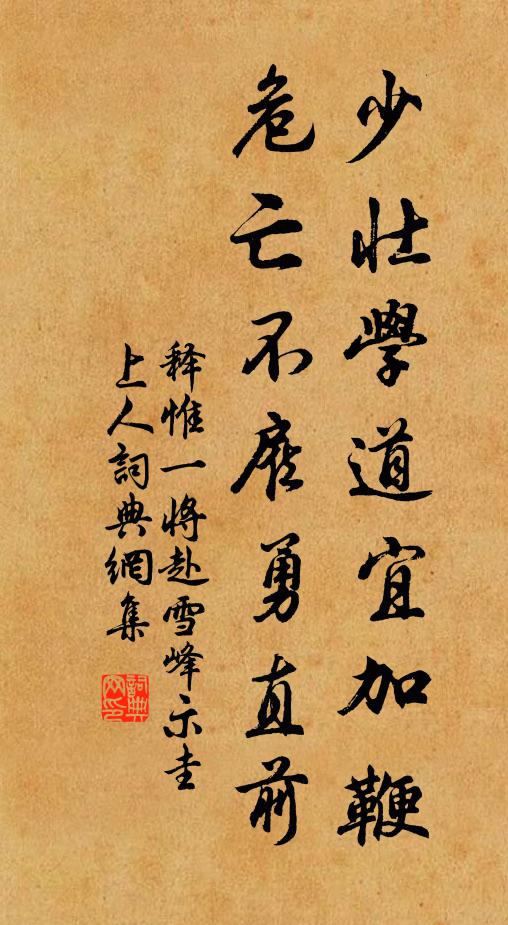 少壯學道宜加鞭
危亡不顧勇直前
释惟一将赴雪峰示圭
上人詞典網集
詞典
网印